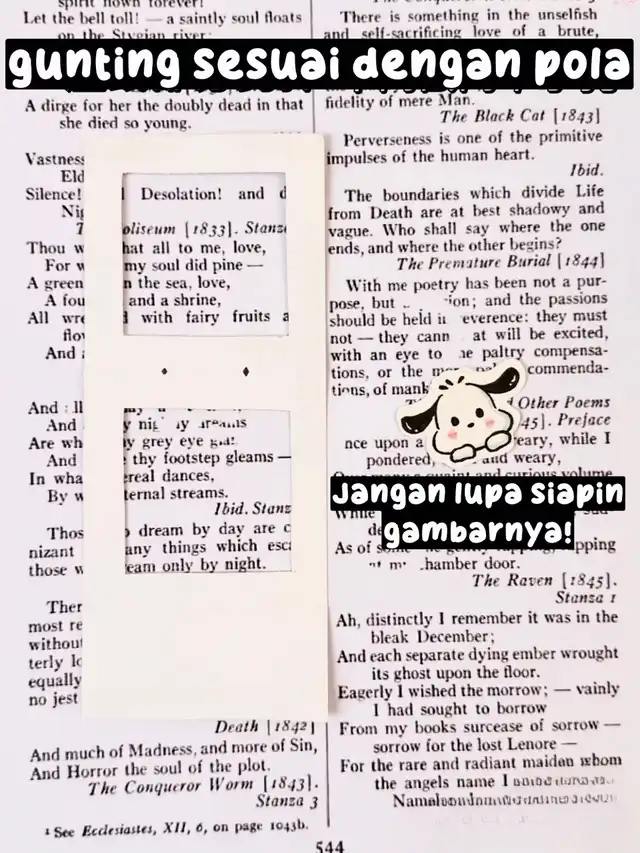 spirit flown forever!
Let the bell toll! — a saintly soul floats
on the Stygian river;
gunting sesuai dengan pola
A dirge for her the doubly dead in that
she died so young.
Vastness
Eld
Silence! Desolation! and d
Nig
oliseum [1833]. Stanz
Thou w hat all to me, love,
For w my soul did pine —
A green n the sea, love,
A fou and a shrine,
All wre with fairy fruits a
flow
And a
And
And
Are wh y grey eye
And thy footstep gleams —
In wha ereal dances,
By w ternal streams.
Ibid. Stanz
Thos dream by day are c
nizant any things which esc
those w eam only by night.
Ther
most re
without
terly lo
equally
no jest
Death [1842]
And much of Madness, and more of Sin,
And Horror the soul of the plot.
The Conqueror Worm [1843].
Stanza 3
¹ See Ecclesiastes, XII, 6, on page 1043b.
There is something in the unselfish
and self-sacrificing love of a brute,
fidelity of mere Man.
The Black Cat [1843]
Perverseness is one of the primitive
impulses of the human heart.
Ibid.
The boundaries which divide Life
from Death are at best shadowy and
vague. Who shall say where the one
ends, and where the other begins?
The Premature Burial [1844]
With me poetry has been not a pur-
pose, but ion; and the passions
should be held i everence: they must
not — they cann at will be excited,
with an eye to paltry compensa-
tions, or the commenda-
tions, of mank
Other Poems
45]. Preface
nce upon a eary, while I
pondered, and weary,
Jangan lupa siapin
gambarnya!
While
As of pping
hamber door.
The Raven [1845].
Stanza 1
Ah, distinctly I remember it was in the
bleak December;
And each separate dying ember wrought
its ghost upon the floor.
Eagerly I wished the morrow; — vainly
I had sought to borrow
From my books surcease of sorrow —
sorrow for the lost Lenore —
For the rare and radiant maiden whom
the angels name
544